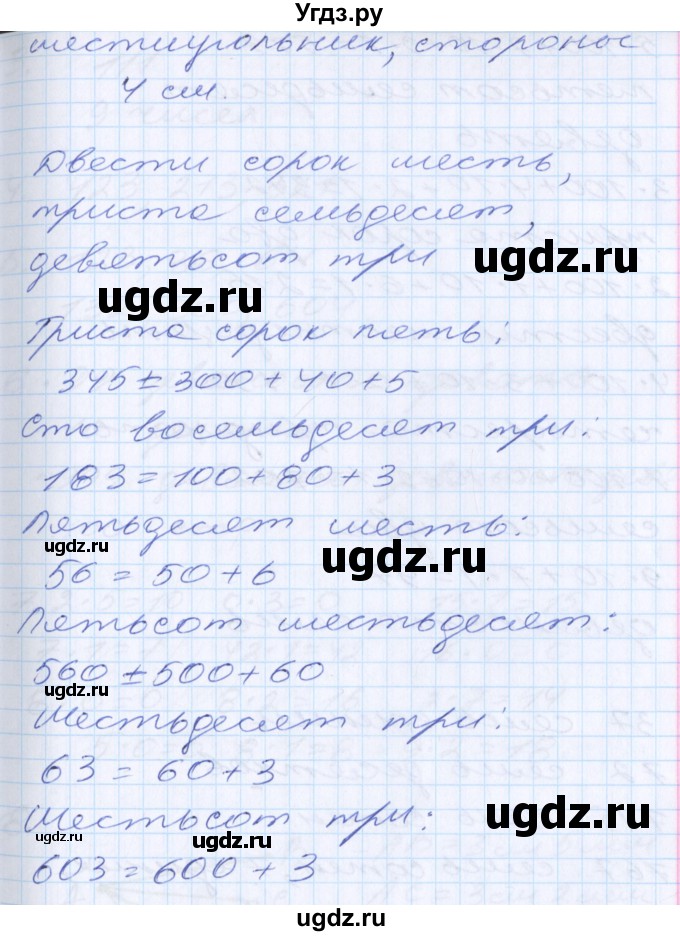 Угдз.ру
шестиугольник, стороны
4 см.
Двести сорок шесть,
триста семьдесят,
девятьсот три
ugdz.ru
ugdz.ru
Триста сорок пять:
345 = 300 + 40 + 5
Сто восемьдесят три:
183 = 100 + 80 + 3
Пятьдесят шесть:
ugdz.ru
ugdz.ru
56 = 50 + 6
Пятьсот шестьдесят:
560 = 500 + 60
ugdz.ru
Шестьдесят три:
63 = 60 + 3
Шестьсот три:
ugdz.ru
ugdz.ru
ugdz.ru
603 = 600 + 3
ugdz.ru